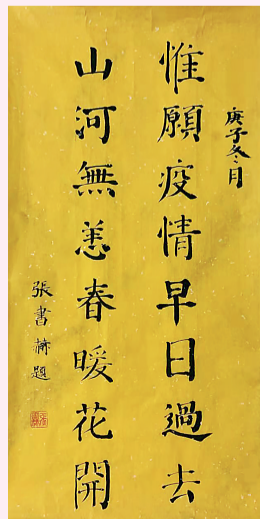 庚子冬月
惟願疫情早日過去
山河無恙春暖花開
張書赫題